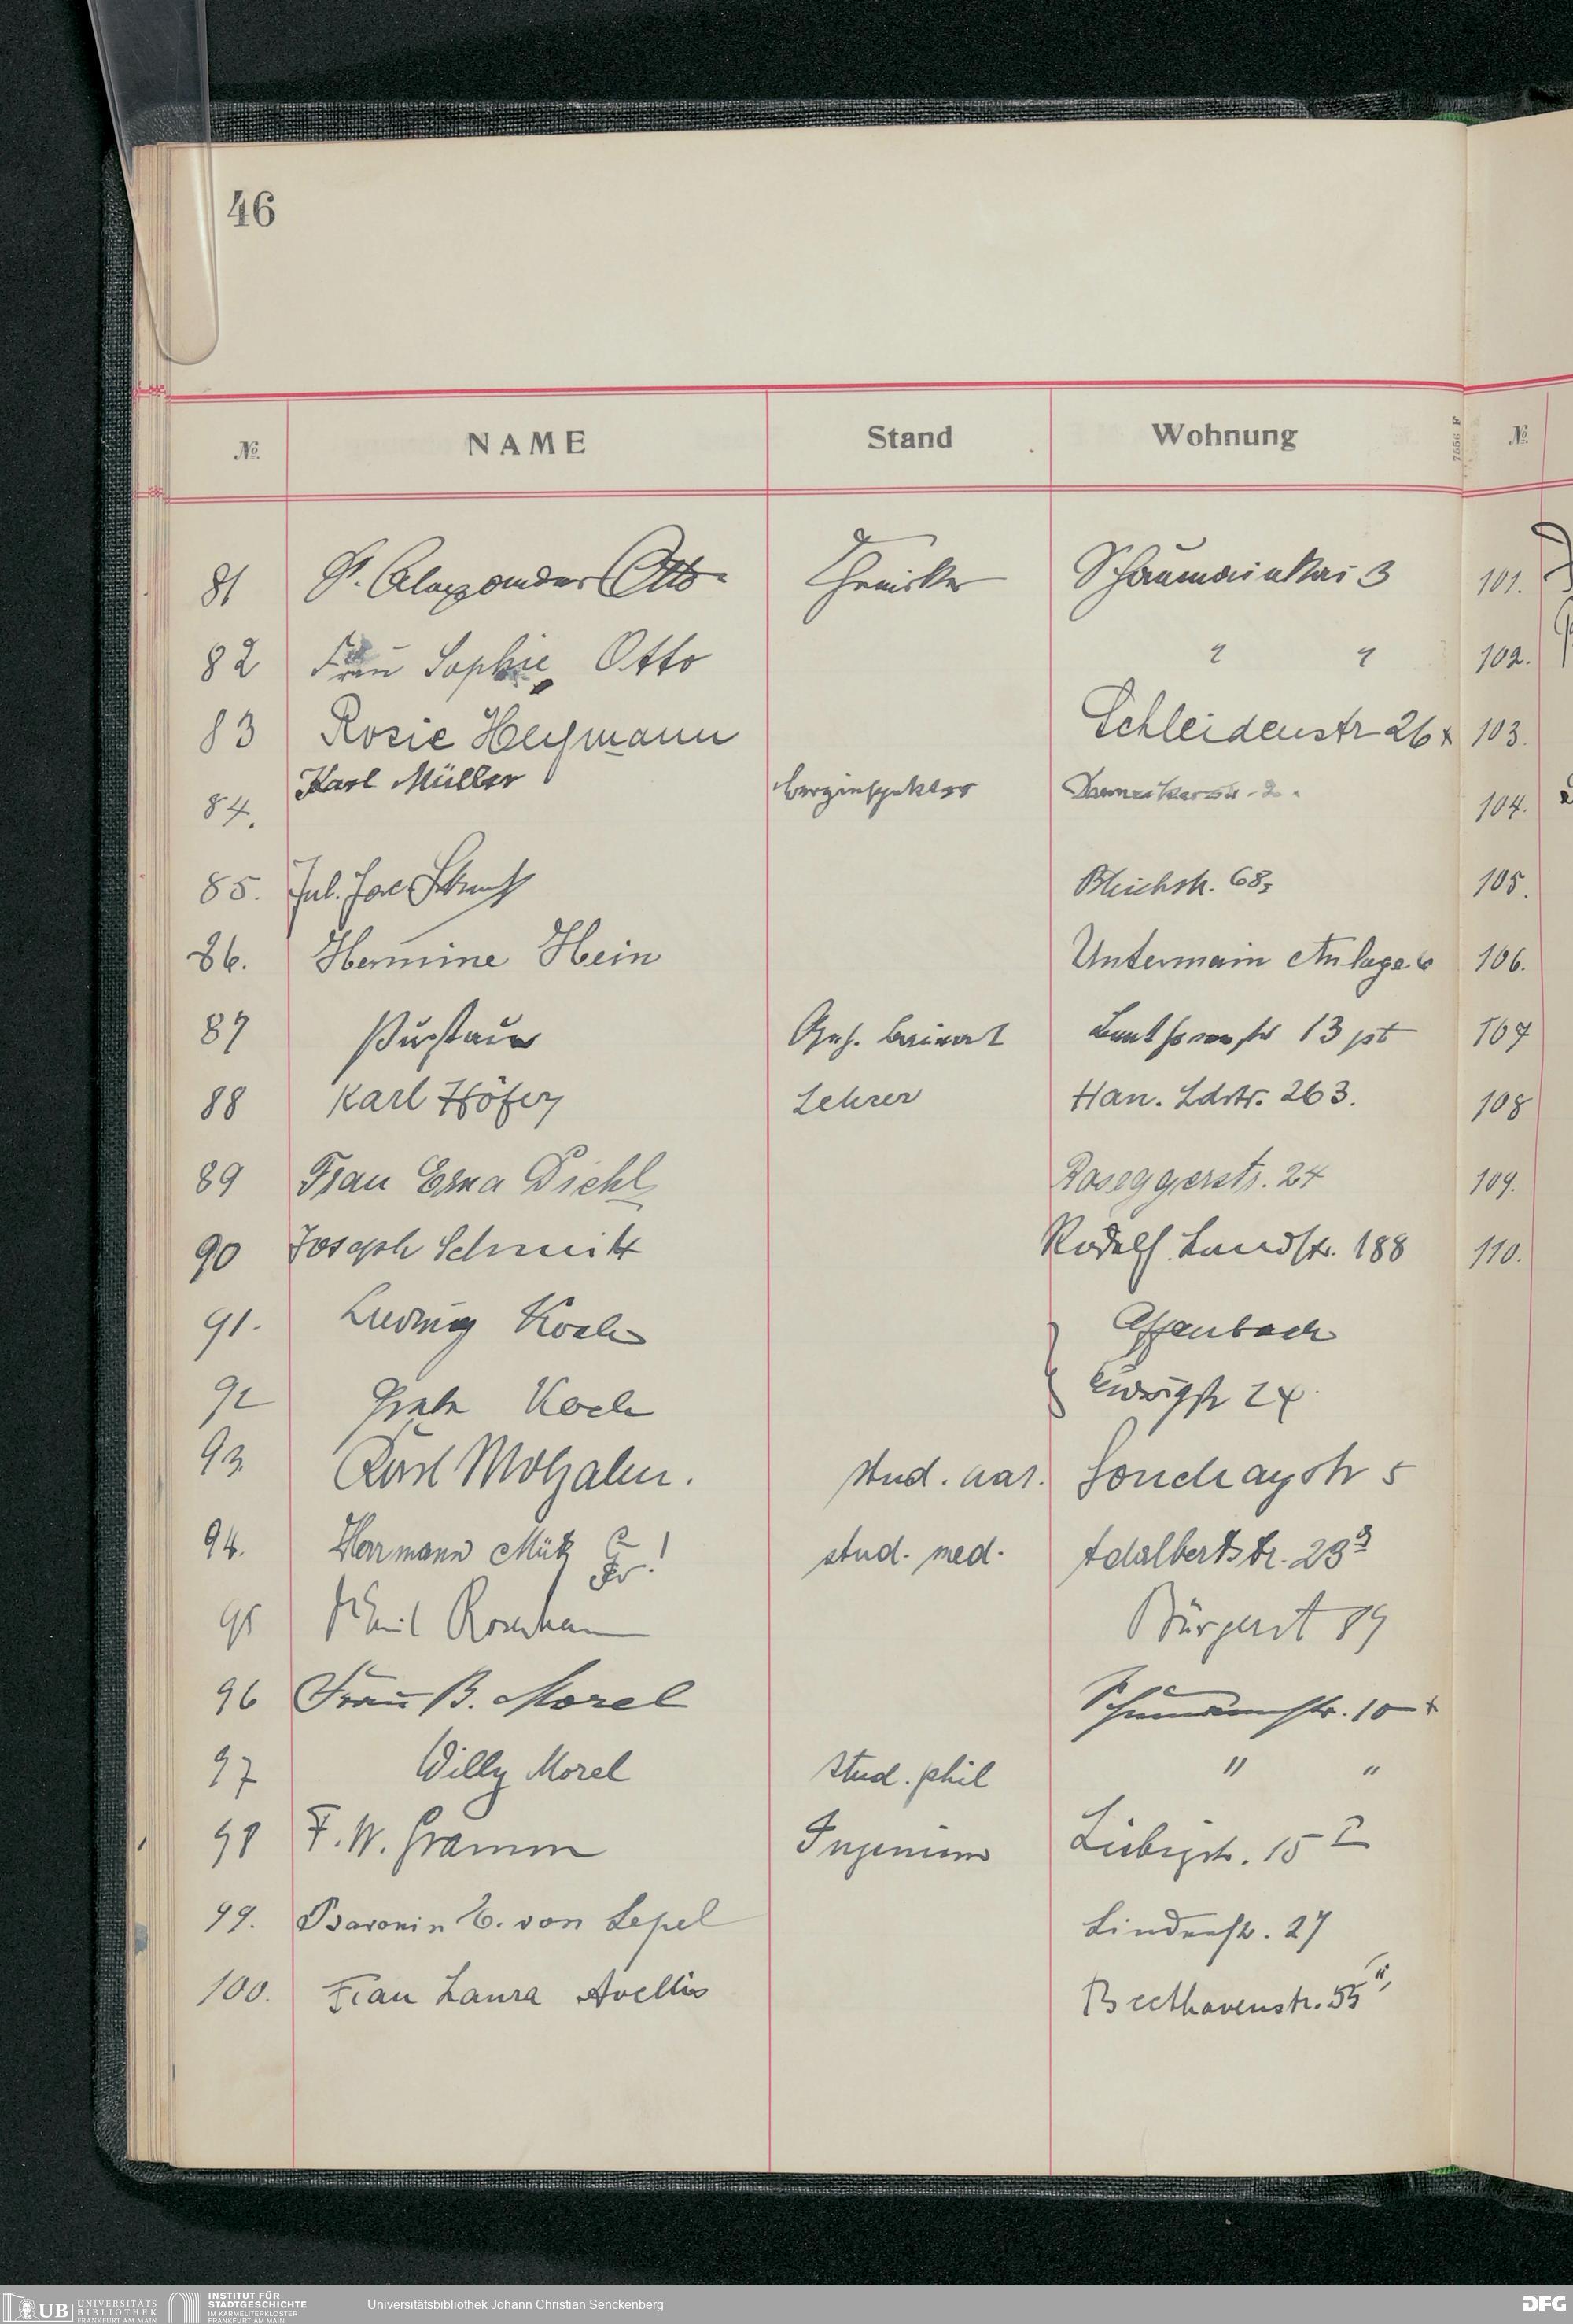 46
№ NAME Stand Wohnung № 
81 Alexander Otto Chemiker Schaumainkai 3 101.
82 Frau Sophie Otto " " 102.
83 Rosie Heymann Schleidenstr 26 103.
84. Karl Müller Berginspektor 2. 104.
85. Jul. Bleichstr. 68 105.
86. Hermine Hein Untermain Anlage 6 106.
87 Geh. Baurat 13 pt 107
88 Karl Höfer Lehrer Han. Ldstr. 263. 108
89 Frau Erna Diehl Roseggerstr. 24 109.
90 Joseph Schmitt Rödelh. Landstr. 188 110.
91. Ludwig Koch Offenbach
92 Koch Ludwigstr
93 Karl Molzahn. stud. nat. Sömmerringstr 5
94. Hermann stud. med. Adalbertstr. 23
95 Emil
96 Frau B. Morel Schumannstr. 10
97 Willy Morel stud. phil " "
98 F. W. Gramm Ingenieur Liebigstr. 15
99. Baronin von Lepel Lindenstr. 27
100. Frau Laura Avellis Beethovenstr. 55 II
7556 F
UB UNIVERSITÄTS BIBLIOTHEK FRANKFURT AM MAIN
INSTITUT FÜR STADTGESCHICHTE IM KARMELITERKLOSTER FRANKFURT AM MAIN
Universitätsbibliothek Johann Christian Senckenberg
DFG